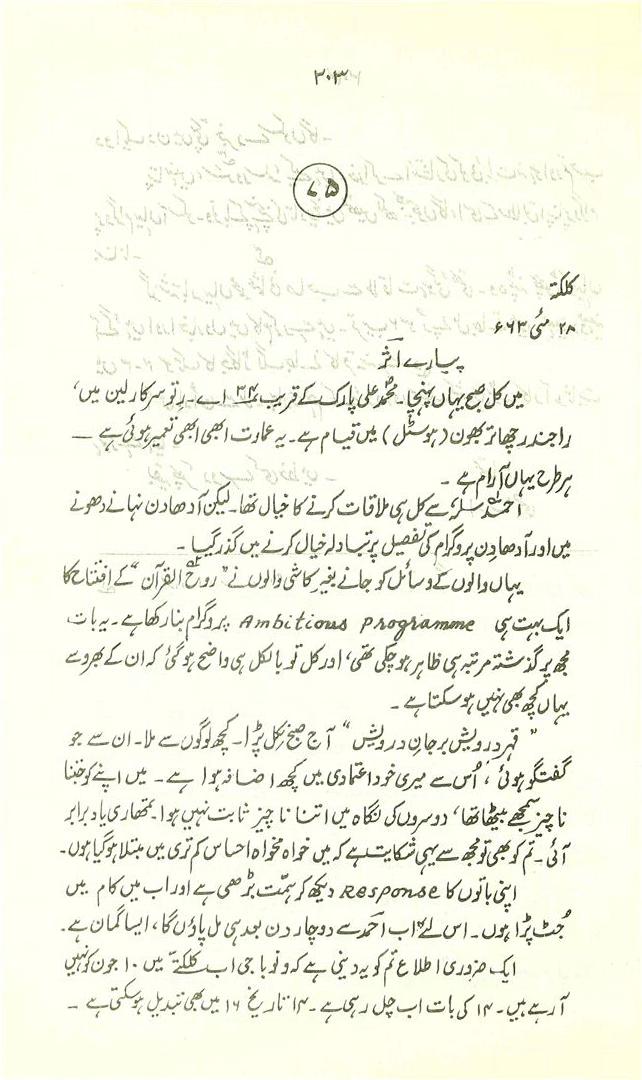 ۳۰۳
۷۵
کلکتہ
۲۸ مئی ۶۶۳
پیارے اثر
میں کل صبح یہاں پہنچا۔ محمد علی پارک کے قریب ۳۴ اے۔ رتو سرکار لین میں،
راجندر چھاتر بھون (ہوسٹل) میں قیام ہے۔ یہ عمارت ابھی ابھی تعمیر ہوئی ہے —
ہر طرح یہاں آرام ہے۔
احمد سلمہٗ سے کل ہی ملاقات کرنے کا خیال تھا۔ لیکن آدھا دن نہانے دھونے
میں اور آدھا دن پروگرام کی تفصیل پر تبادلہ خیال کرنے میں گذر گیا۔
یہاں والوں کے وسائل کو جانے بغیر کاشی والوں نے "روح القرآن" کے افتتاح کا
ایک بہت ہی Ambitious Programme پروگرام بنا رکھا ہے۔ یہ بات
مجھ پر گذشتہ مرتبہ ہی ظاہر ہو چکی تھی، اور کل تو بالکل ہی واضح ہو گئی کہ ان کے بھروسے
یہاں کچھ بھی نہیں ہو سکتا ہے۔
"قہر درویش بر جانِ درویش" آج صبح نکل پڑا۔ کچھ لوگوں سے ملا۔ ان سے جو
گفتگو ہوئی، اُس سے میری خود اعتمادی میں کچھ اضافہ ہوا ہے۔ میں اپنے کو جتنا
ناچیز سمجھے بیٹھا تھا، دوسروں کی نگاہ میں اتنا ناچیز ثابت نہیں ہوا۔ تمھاری یاد برابر
آئی۔ تم کو بھی تو مجھ سے یہی شکایت ہے کہ میں خواہ مخواہ احساس کمتری میں مبتلا ہو گیا ہوں۔
اپنی باتوں کا Response دیکھ کر ہمّت بڑھی ہے اور اب میں کام میں
جُٹ پڑا ہوں۔ اس لئے اب احمد سے دو چار دن بعد ہی مل پاؤں گا، ایسا گمان ہے۔
ایک ضروری اطلاع تم کو یہ دینی ہے کہ ونوبا جی اب کلکتے میں ۱۰ جون کو نہیں
آ رہے ہیں۔ ۱۴ کی بات اب چل رہی ہے۔ ۱۴ تاریخ ۱۶ میں بھی تبدیل ہو سکتی ہے۔